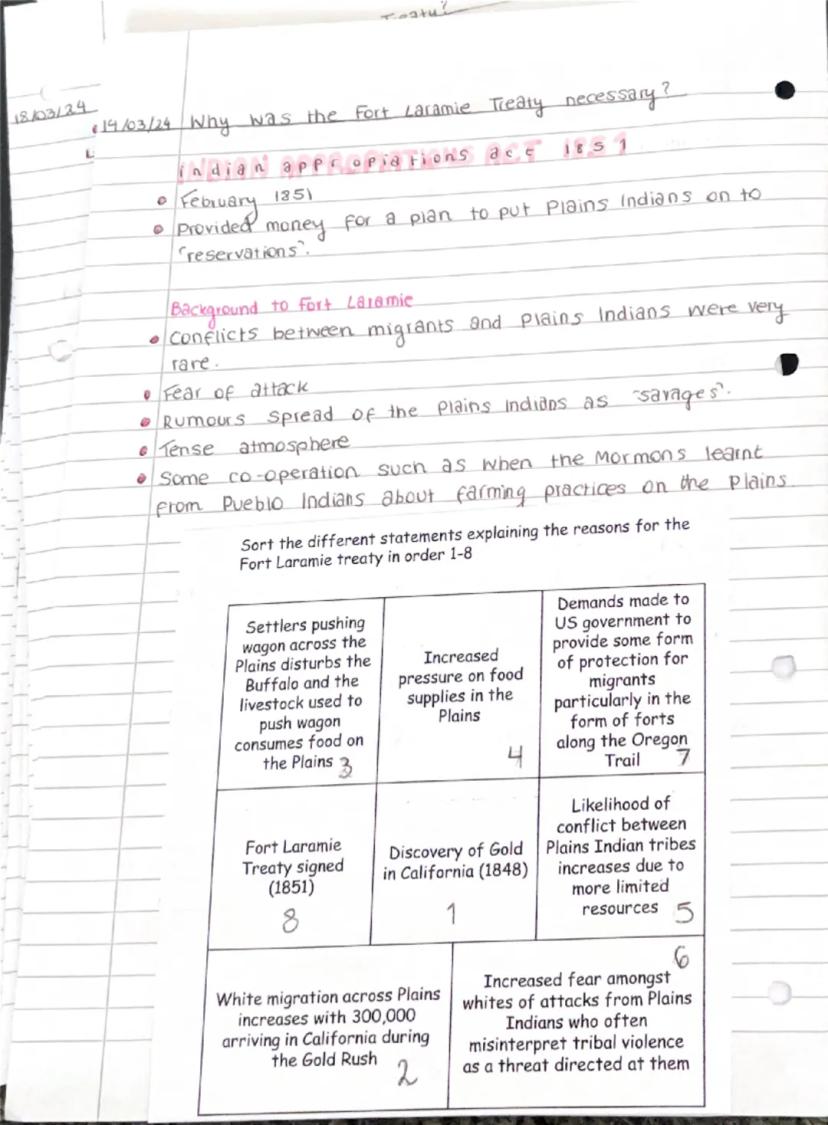 Treaty?
18/03/24
19/03/24 Why was the Fort Laramie Treaty necessary?
indian appropiations act 1851
February 1851
Provided money for a plan to put Plains Indians on to
"reservations".
Background to Fort Laramie
Conflicts between migrants and Plains Indians were very
rare.
Fear of attack
Rumours spread of the Plains Indians as "savages".
Tense atmosphere
Some co-operation such as when the Mormons learnt
from Pueblo Indians about farming practices on the Plains
Sort the different statements explaining the reasons for the
Fort Laramie treaty in order 1-8
Settlers pushing
wagon across the
Plains disturbs the
Buffalo and the
livestock used to
push wagon
consumes food on
the Plains 3
Increased
pressure on food
supplies in the
Plains
4
Demands made to
US government to
provide some form
of protection for
migrants
particularly in the
form of forts
along the Oregon
Trail 7
Fort Laramie
Treaty signed
(1851)
8
Discovery of Gold
in California (1848)
1
Likelihood of
conflict between
Plains Indian tribes
increases due to
more limited
resources 5
White migration across Plains
increases with 300,000
arriving in California during
the Gold Rush
2
6
Increased fear amongst
whites of attacks from Plains
Indians who often
misinterpret tribal violence
as a threat directed at them